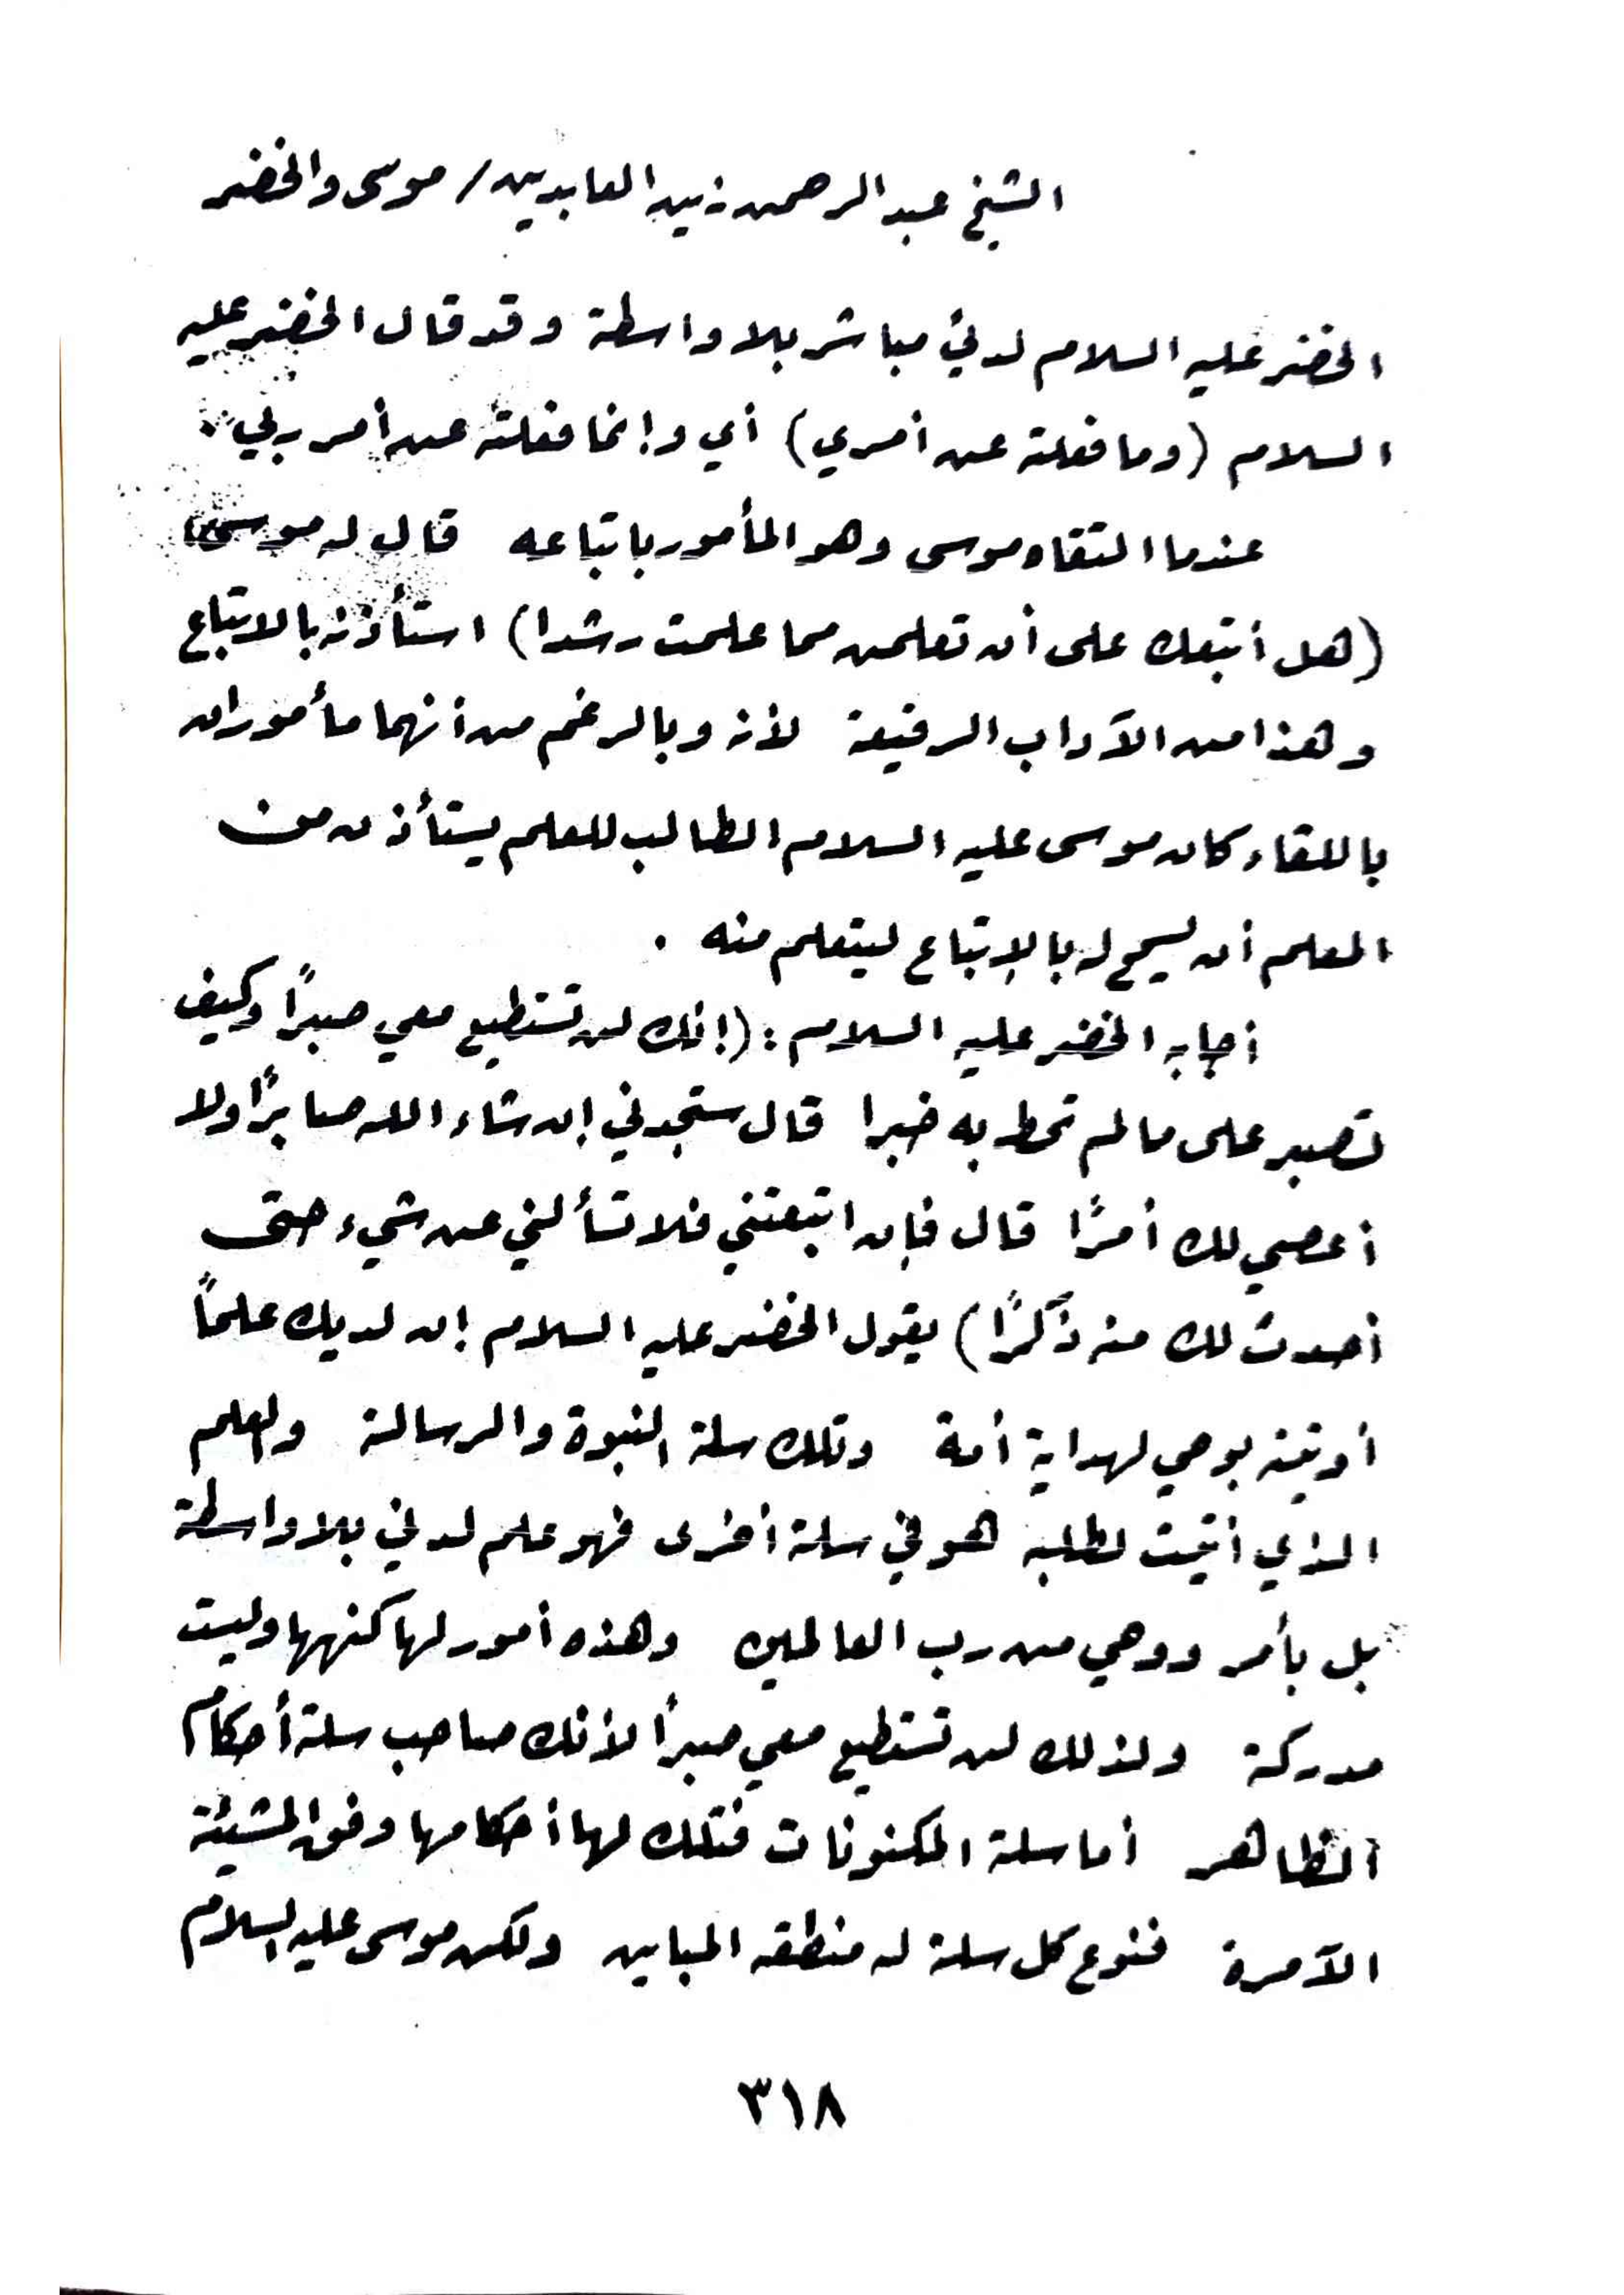 الشيخ عبد الرحمن زين العابدين / موسى والخضر
الخضر عليه السلام لدني مباشر بلا واسطة وقد قال الخضر عليه
السلام (وما فعلته عن أمري) أي وإنما فعلته عن أمر ربي .
عندما التقاه موسى وهو المأمور باتباعه قال له موسى
(هل أتبعك على أن تعلمن مما علمت رشدا) استأذنه بالاتباع
وهذا من الآداب الرفيعة لأنه وبالرغم من أنهما مأموران
باللقاء كان موسى عليه السلام الطالب للعلم يستأذن من
المعلم أن يسمح له بالإتباع ليتعلم منه .
أجابه الخضر عليه السلام : (إنك لن تستطيع معي صبراً وكيف
تصبر على ما لم تحط به خبرا قال ستجدني إن شاء الله صابرًا ولا
أعصي لك أمرًا قال فإن اتبعتني فلا تسألني عن شيء حتى
أحدث لك منه ذكرًا) يقول الخضر عليه السلام إن لديك علماً
أوتيته بوحي لهداية أمة وتلك سلة النبوة والرسالة والعلم
الذي أتيت لطلبه هو في سلة أخرى فهو علم لدني بلا واسطة
بل بأمر ووحي من رب العالمين وهذه أمور لها كنهها وليست
مدركة ولذلك لن تستطيع معي صبراً لأنك صاحب سلة أحكام
الظاهر أما سلة المكنونات فتلك لها أحكامها وفق المشيئة
الآمرة فنوع كل سلة له منطقه المباين ولكن موسى عليه السلام
٣١٨